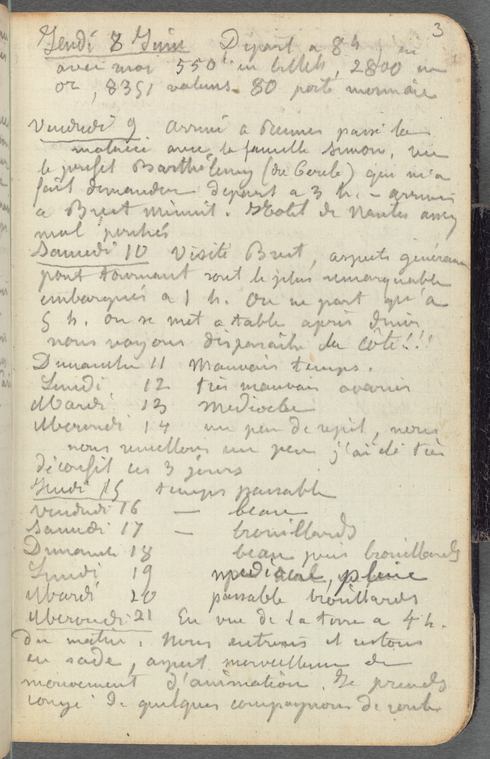 3
Jeudi 8 Juin Départ a 8h, j'ai
avec moi 550 en billets, 2800 en
or, 835, valeurs. 80 porte monnaie
Vendredi 9 arrivé a Rennes passé la
matinée avec la famille Simon, vu
le préfet Barthélemy (du Cercle) qui m'a
fait demander départ a 3 h. - arrivés
a Brest minuit. Hotel de Nantes assez
mal
Samedi 10 Visité Brest, aspects généraux
pont tournant sont le plus remarquable
embarqués a 1 h. On ne part qu'a
5 h. on se met a table après diner
nous voyons disparaître la côte!!!
Dimanche 11 Mauvais temps.
Lundi 12 très mauvais avaries
Mardi 13 mediocre
Mercredi 14 un peu de repit, nous
nous reveillons un peu j'ai été très
déconfit ces 3 jours
Jeudi 15 temps passable
Vendredi 16 — beau
Samedi 17 — brouillards
Dimanche 18 beau puis brouillards
Lundi 19 médiocre, pluie
Mardi 20 passable brouillards
Mercredi 21 En vue de la terre a 4 h.
du matin. Nous entrons et restons
en rade, aspect merveilleux de
mouvement d'animation. Je prends
congé de quelques compagnons de route